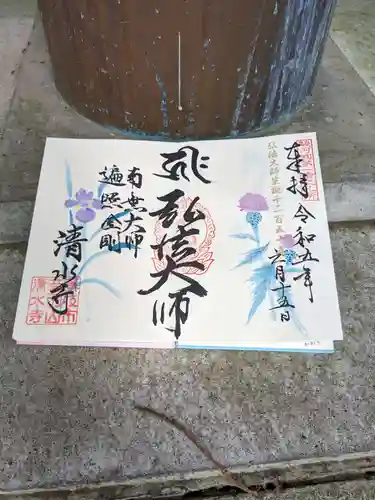 奉拝
令和五年
六月十五日
弘法大師生誕千二百五十年
弘法大師
南無大師
遍照金剛
清水寺